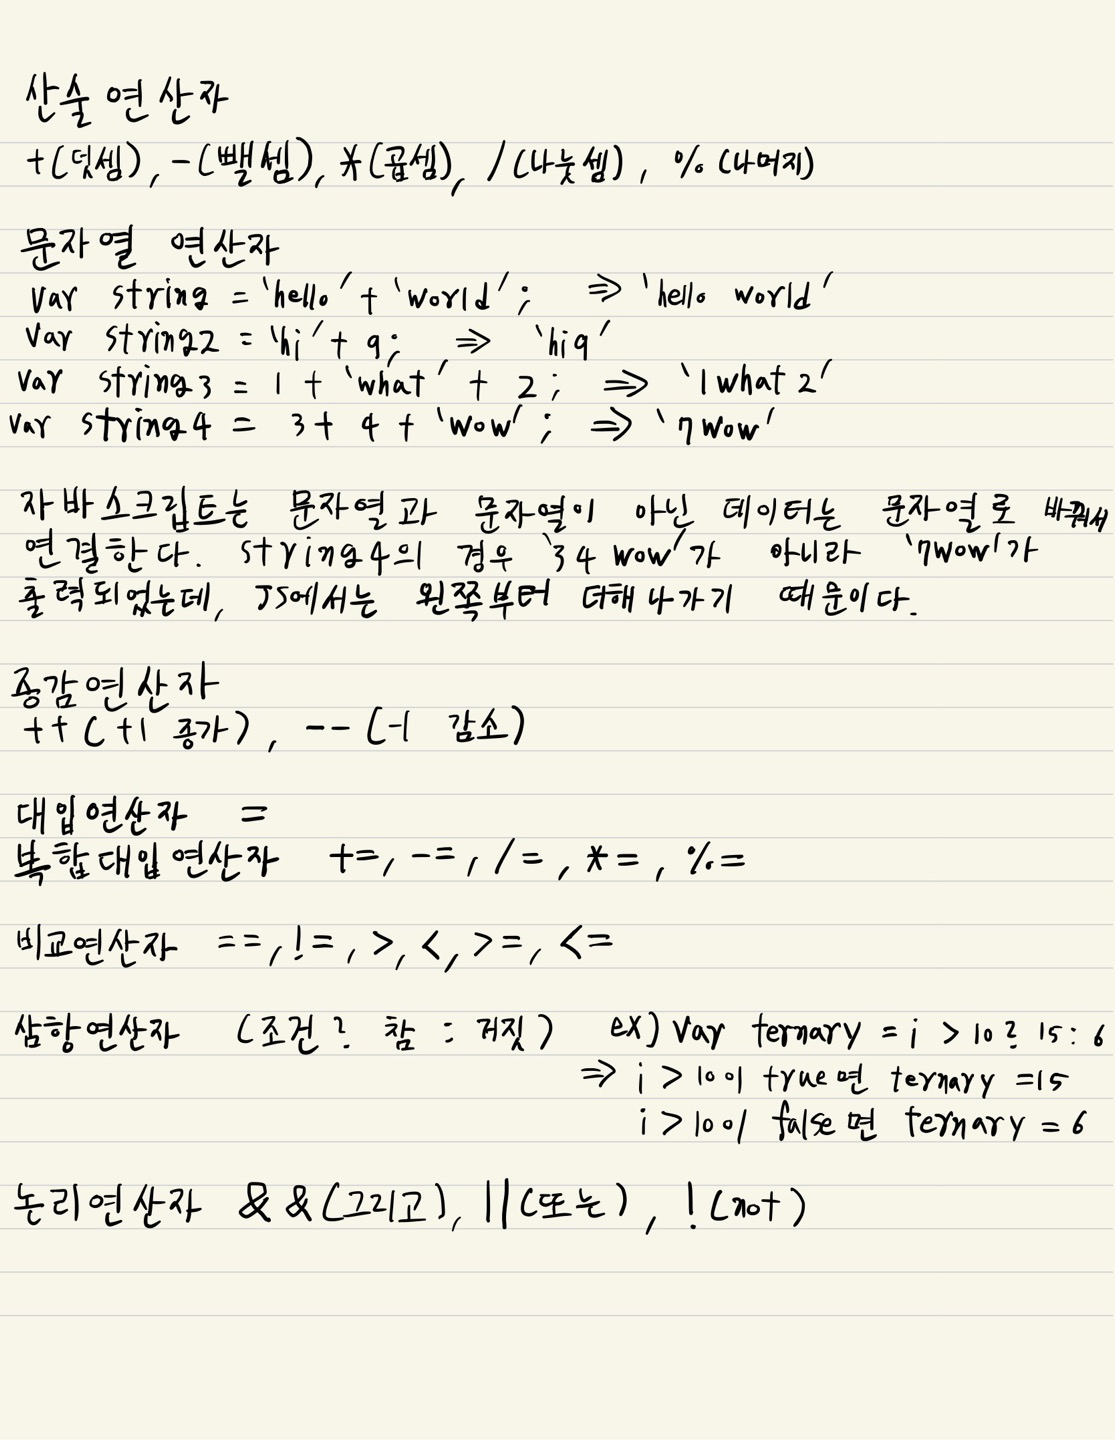 산술연산자
+(덧셈), -(뺄셈), *(곱셈), /(나눗셈), %(나머지)
문자열 연산자
var string = 'hello' + 'world'; ⇒ 'hello world'
var string2 = 'hi' + 9; ⇒ 'hi9'
var string3 = 1 + 'what' + 2; ⇒ '1what2'
var string4 = 3 + 4 + 'wow'; ⇒ '7wow'
자바스크립트는 문자열과 문자열이 아닌 데이터는 문자열로 바꿔서
연결한다. string4의 경우 '34wow'가 아니라 '7wow'가
출력되었는데, JS에서는 왼쪽부터 더해나가기 때문이다.
증감연산자
++(+1 증가), --(-1 감소)
대입연산자 =
복합대입연산자 +=, -=, /=, *=, %=
비교연산자 ==, !=, >, <, >=, <=
삼항연산자 (조건? 참 : 거짓) ex) var ternary = i > 10 ? 15 : 6
⇒ i > 10이 true면 ternary = 15
i > 10이 false면 ternary = 6
논리연산자 &&(그리고), ||(또는), !(not)